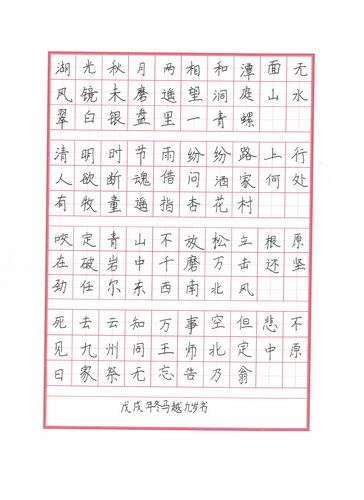 湖光秋月两相和潭面无
风镜未磨遥望洞庭山水
翠白银盘里一青螺
清明时节雨纷纷路上行
人欲断魂借问酒家何处
有牧童遥指杏花村
咬定青山不放松立根原
在破岩中千磨万击还坚
劲任尔东西南北风
死去云知万事空但悲不
见九州同王师北定中原
日家祭无忘告乃翁
戊戌年冬马越九岁书